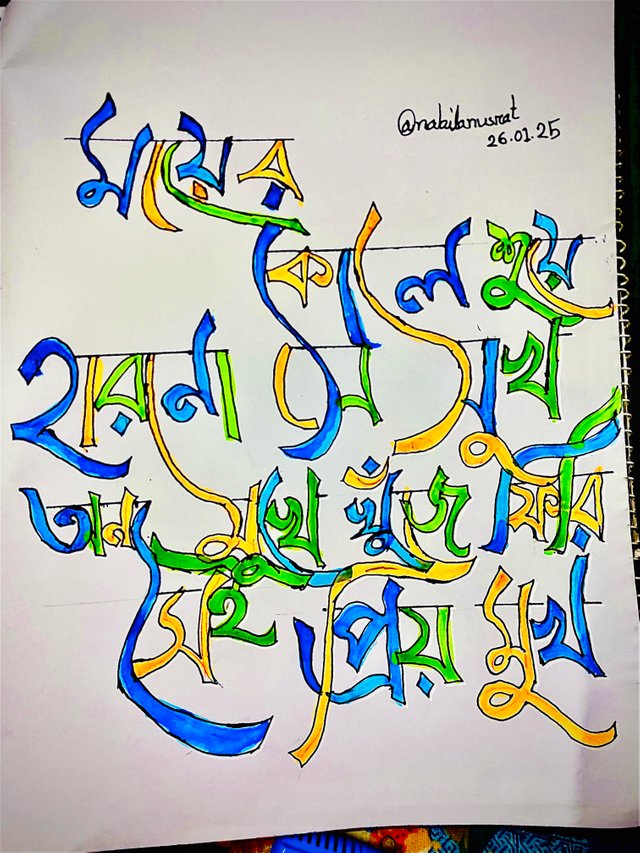 @nabilanusrat
26.01.25
মায়ের
কোলে শুয়ে
হারানো সে সুখ
অন্য মুখে খুঁজে ফিরি
সেই প্রিয় মুখ